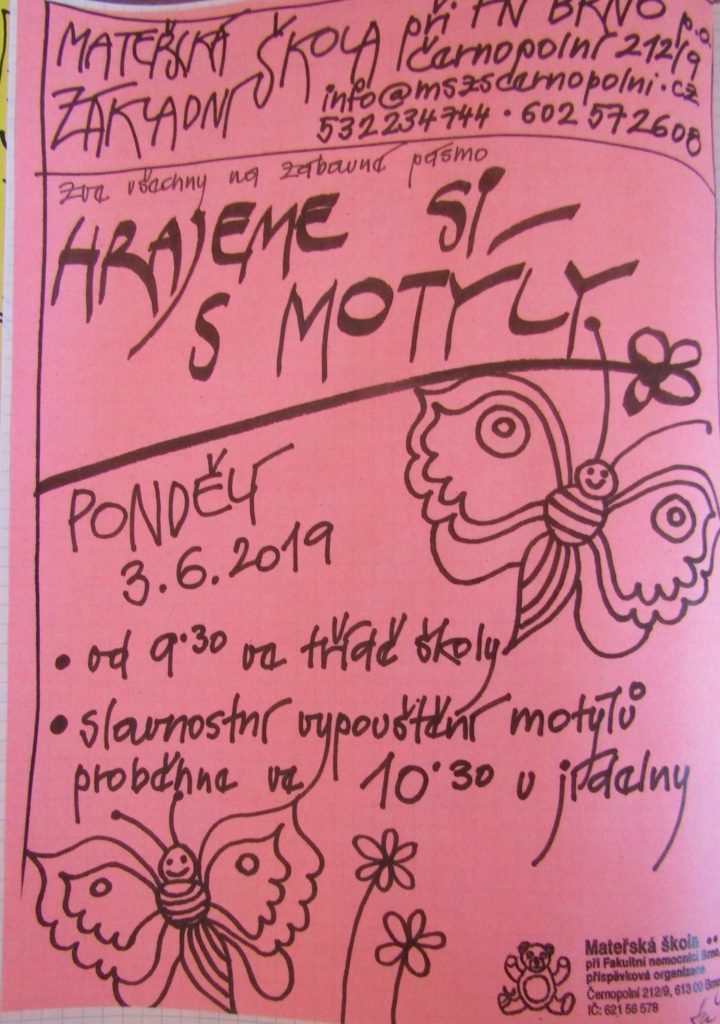 MATEŘSKÁ ŠKOLA při FN BRNO p.o.
ZÁKLADNÍ černopolní 212/9
info@mszscernopolni.cz
532234744 · 602 572608
zve všechny na zábavné pásmo
HRAJEME SI
S MOTÝLY
PONDĚLÍ
3.6.2019
• od 9·30 ve třídě školy
• slavnostní vypouštění motýlů
proběhne ve 10·30 u jídelny
Mateřská škola
při Fakultní nemocnici Brno,
příspěvková organizace
Černopolní 212/9, 613 00 Brno
IČ: 621 56 578